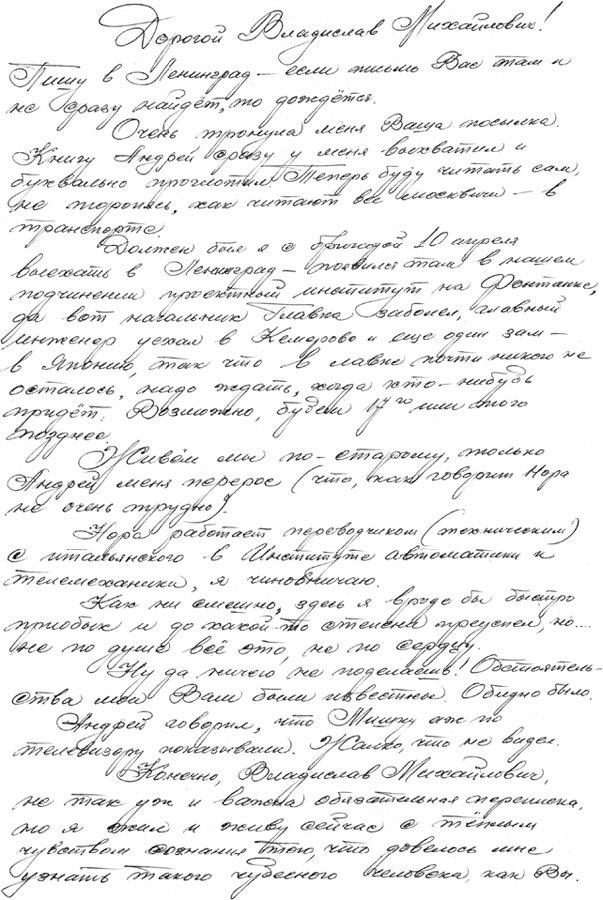 Дорогой Владислав Михайлович!
Пишу в Ленинград – если письмо Вас там и
не сразу найдёт, то дождётся.
Очень тронула меня Ваша посылка.
Книгу Андрей сразу у меня выхватил и
буквально проглотил. Теперь буду читать сам,
не торопясь, как читают все москвичи – в
транспорте.
Должен был я с бригадой 10 апреля
выехать в Ленинград – появился там в нашем
подчинении проектный институт на Фонтанке,
да вот начальник Главка заболел, главный
инженер уехал в Кемерово и еще один зам –
в Японию, так что в главке почти никого не
осталось, надо ждать, когда кто-нибудь
придёт. Возможно, будет 17го или много
позднее.
Живём мы по-старому, только
Андрей меня перерос (что, как говорит Нора
не очень трудно).
Нора работает переводчиком (техническим)
с итальянского в Институте автоматики и
телемеханики, я чиновничаю.
Как ни смешно, здесь я вроде бы быстро
приобык и до какой-то степени преуспел, но....
не по душе всё это, не по сердцу.
Ну да ничего не поделаешь! Обстоятель-
ства мои Вам были известны. Обидно было.
Андрей говорил, что Мишку аж по
телевизору показывали. Жалко, что не видел.
Конечно, Владислав Михайлович,
не так уж и важна обязательная переписка,
но я жил и живу сейчас с тёплым
чувством сознания того, что довелось мне
узнать такого чудесного человека, как Вы.